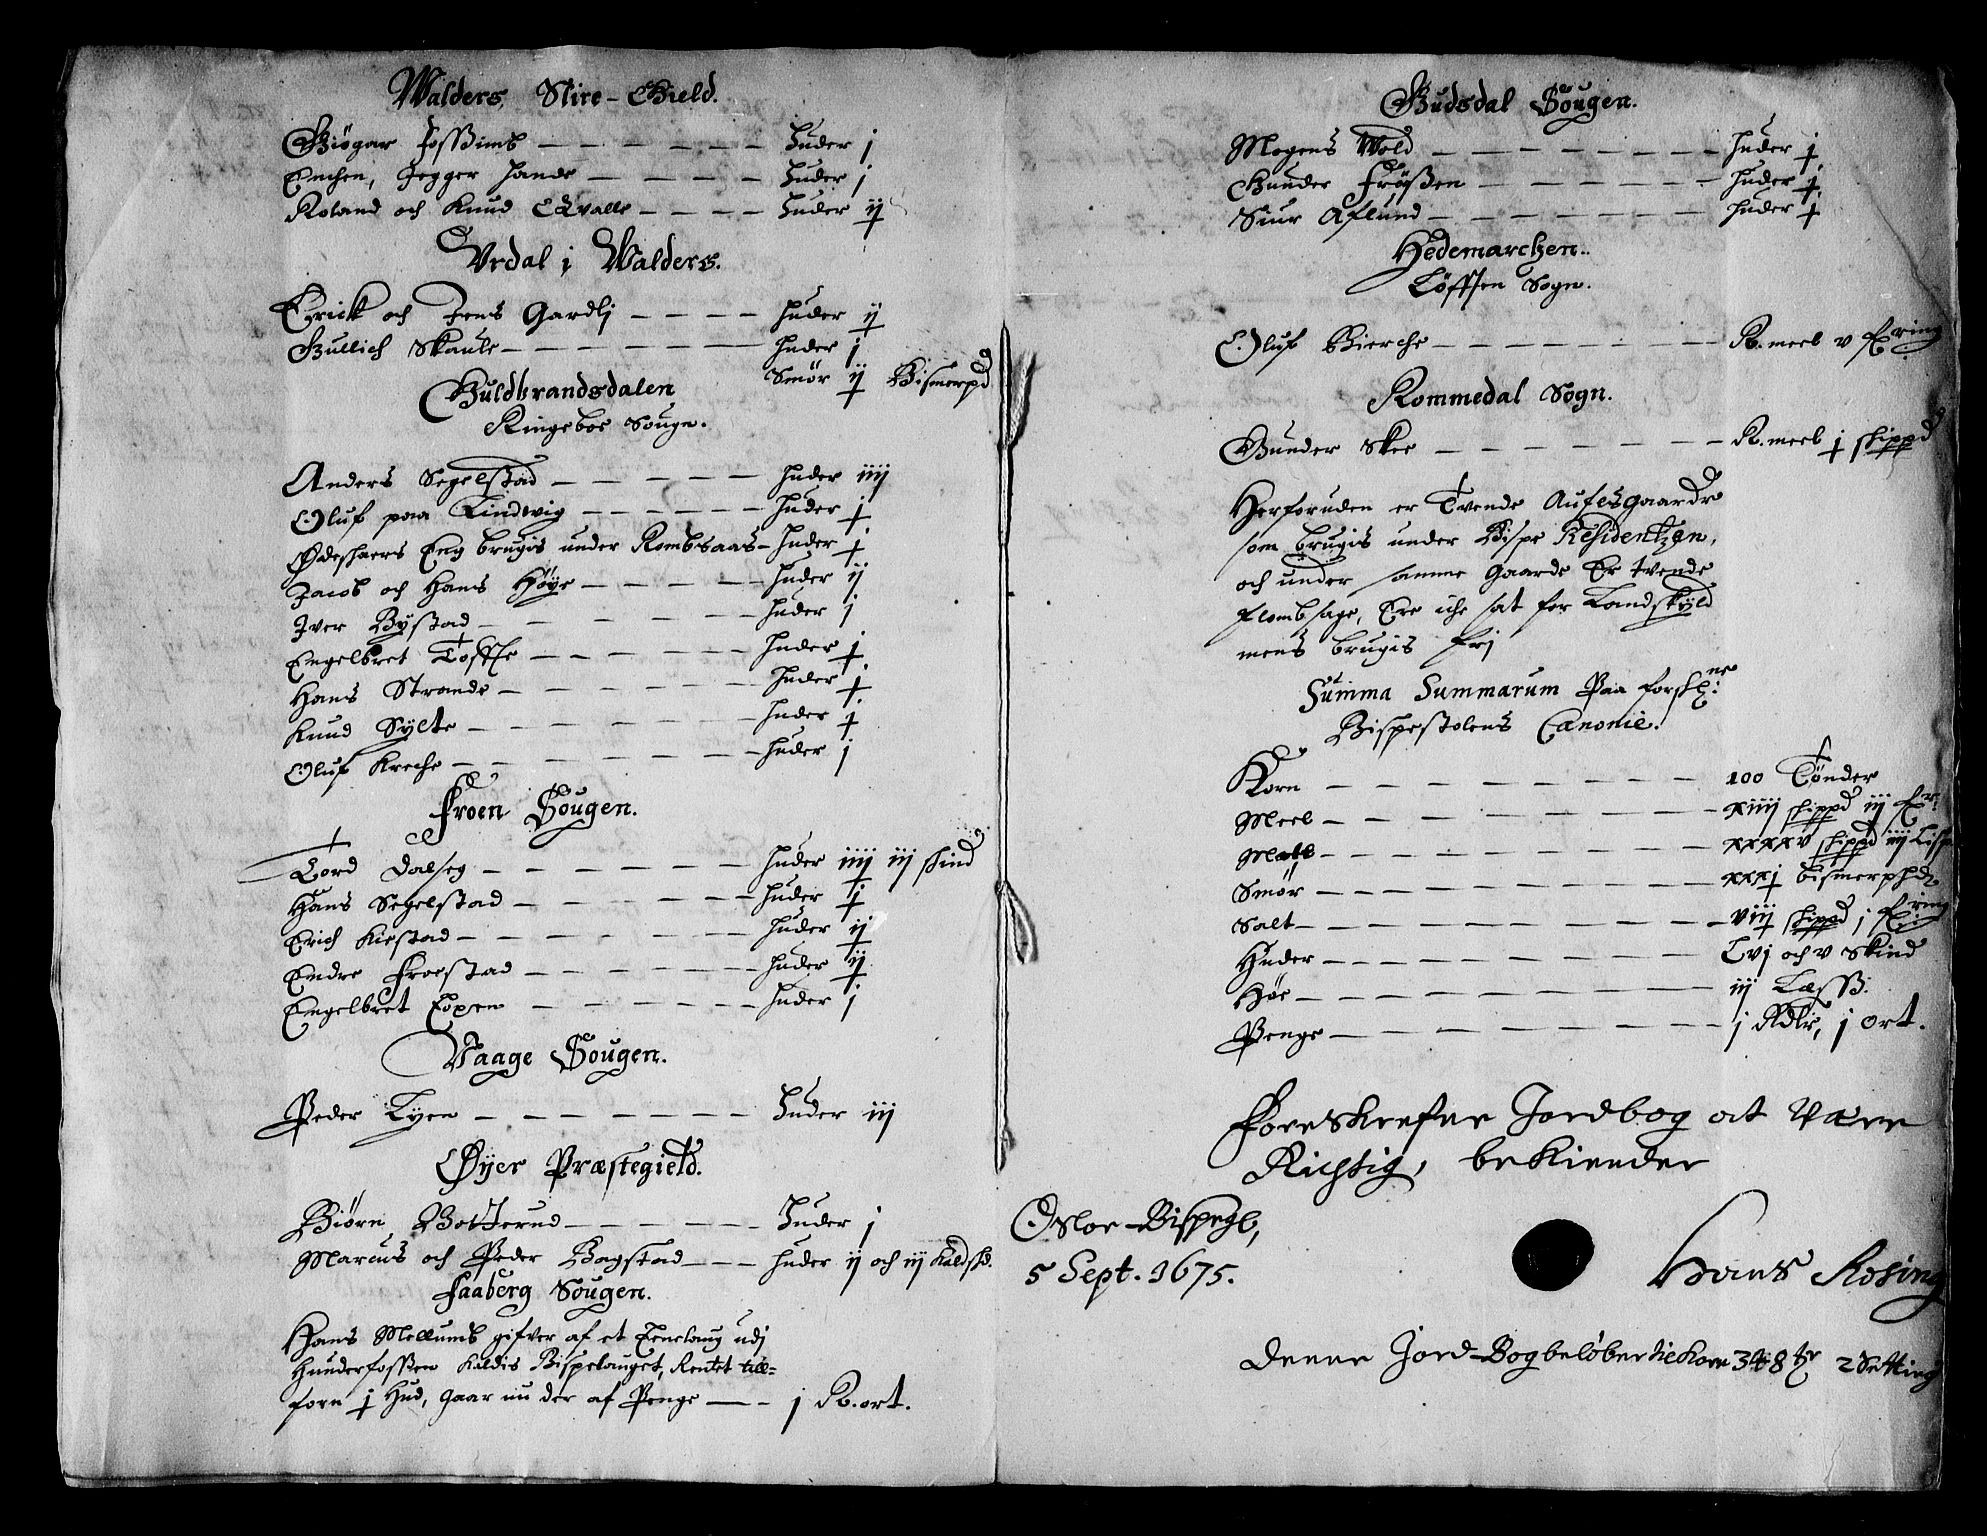 Walders Slire-Gield.
Biögar fossimb - - - - - - Huder j
Enchen, Jegger hande - - - - Huder j
Roland och Knud Qvalle - - - - Huder ij
Vrdal i Walders.
Erick och Jens Gardlj - - - - Huder ij
Gullich Skaule - - - - - - Huder j
Smør ij Bismerpd
Guldbrandsdalen
Ringeboe Sougn.
Anders Segelstad - - - - - Huder iiij
Oluf paa Lindvig - - - - - - Huder j
Ødeshaers Eng brugis under Rombsaas - Huder j
Jacob och Hans Høye - - - - - Huder ij
Iver Bystad - - - - - - - Huder j
Engelbret Toffte - - - - - - Huder j
Hans Strande - - - - - - - Huder j
Knud Sylte - - - - - - - Huder j
Oluf Kreche - - - - - - - Huder j
Froen Sougen.
Tord Dalseg - - - - - - Huder iiij iij skind
Hans Segelstad - - - - - - Huder j
Erich Kiestad - - - - - - Huder ij
Endre Froestad - - - - - - Huder ij
Engelbret Lopen - - - - - - Huder j
Vaage Sougen.
Peder Lyen - - - - - - - Huder iij
Øyer Præstegield.
Biørn Botterud - - - - - - Huder j
Marcus och Peder Bagstad - - - Huder ij och iij Kalfskd.
Faaberg Sougen.
Hans Mellumb gifver af et Enelaug udj
Hunderfossen kaldis Bispelauget, Rentet till-
forn j Hud, gaar nu der af Penge - - j R. ort.
Gudsdal Sougen.
Mogens Wold - - - - - - - - Huder j
Gunder Frøssen - - - - - - - Huder j
Siur Aflund - - - - - - - - Huder j
Hedemarchen.
Løfften Sogn.
Oluf Bierche - - - - - - - - R. meel v fering
Rommedal Sogn.
Gunder Skee - - - - - - - - R. meel j skippd
Herforuden er Tvende Aufelsgaarde
som brugis under Bispe Residentzen,
och under samme Gaarde Er tvende
flombsage, Ere iche sat for Landskyld
mens brugis frj
Summa Summarum Paa forskr:ne
Bispestolens Canonie.
Korn - - - - - - - - 100 Tønder
Meel - - - - - - - - xiiij skippd iij fr:
Malt - - - - - - - - xxxxv skippd iiij Lispd
Smør - - - - - - - - xxxj bismerphd
Salt - - - - - - - - viij skippd j fering
Huder - - - - - - - - Lvj och v Skind
Høe - - - - - - - - iij Læss.
Penge - - - - - - - - j Rdlr, j ort.
Foreskrefne Jordbog at være
Richtig, bekiender
Osloe Bispegb,
5 Sept. 1675.
Hans Rosing
Denne Jord-Bog beløber til Korn 348 tr 2 Setting